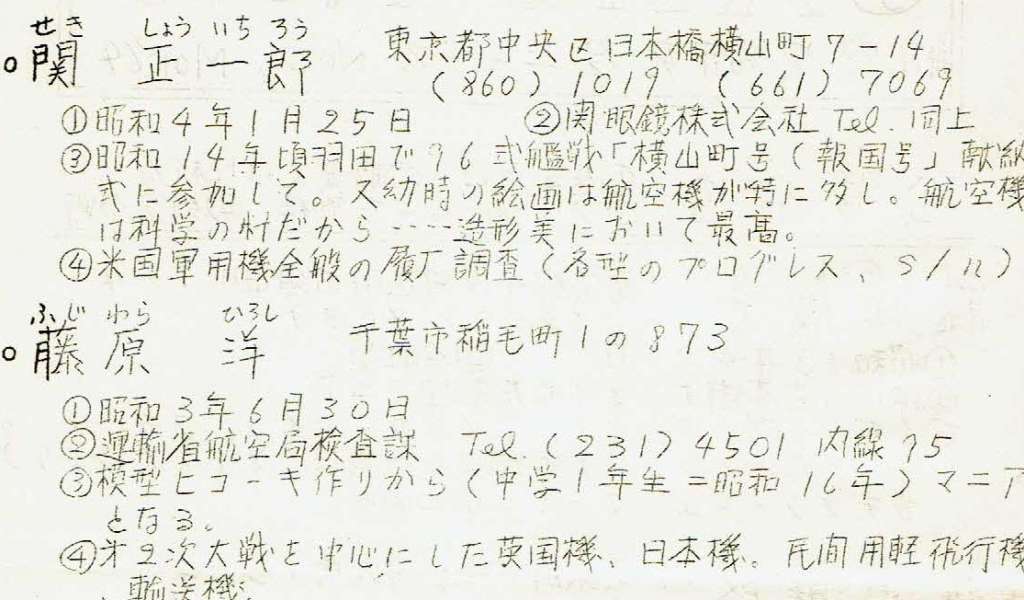 せき しょう いち ろう
○関 正一郎 東京都中央区日本橋横山町7-14
(860) 1019 (661) 7069
①昭和4年1月25日 ②関眼鏡株式会社 Tel. 同上
③昭和14年頃羽田で96式艦戦「横山町号(報国号」献納
式に参加して。又幼時の絵画は航空機が特に多し。航空機
は科学の粋だから‥‥造形美において最高。
④米国軍用機全般の履歴調査(各型のプログレス、S/n)
ふじ わら ひろし
○藤原 洋 千葉市稲毛町1の873
①昭和3年6月30日
②運輸省航空局検査課 Tel. (231) 4501 内線75
③模型ヒコーキ作りから(中学1年生=昭和16年)マニア
となる。
④第2次大戦を中心にした英国機、日本機。民間用軽飛行機
、輸送機。